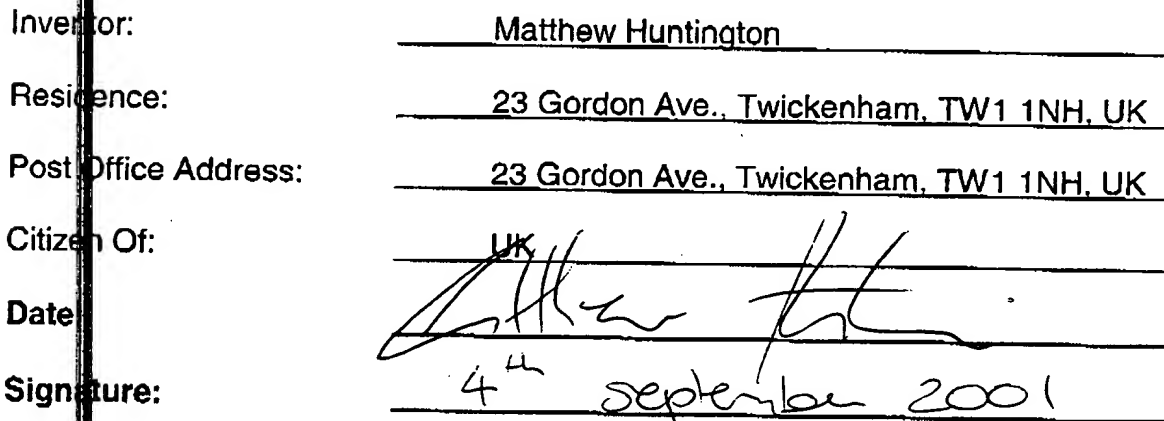 Inventor: Matthew Huntington
Residence: 23 Gordon Ave., Twickenham, TW1 1NH, UK
Post Office Address: 23 Gordon Ave., Twickenham, TW1 1NH, UK
Citizen Of: UK
Date Matthew
Signature: 4th september 2001